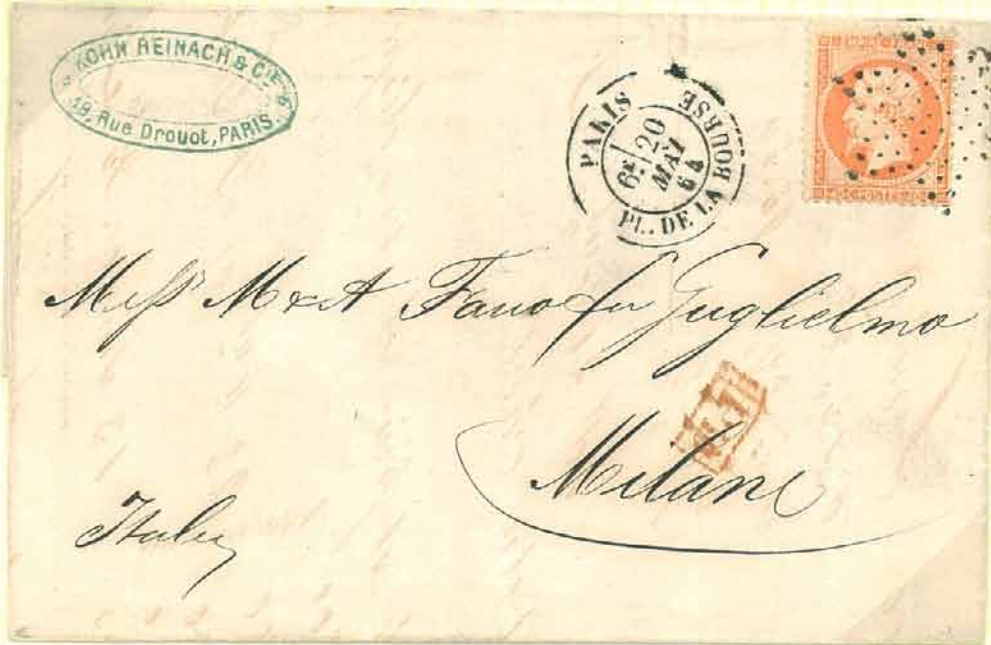 KOHN REINACH & CIE
19, Rue Drouot, PARIS
PARIS
6E 20
MAI
64
PL. DE LA BOURSE
Messrs M & A Fano fu Guglielmo
Milano
Italy